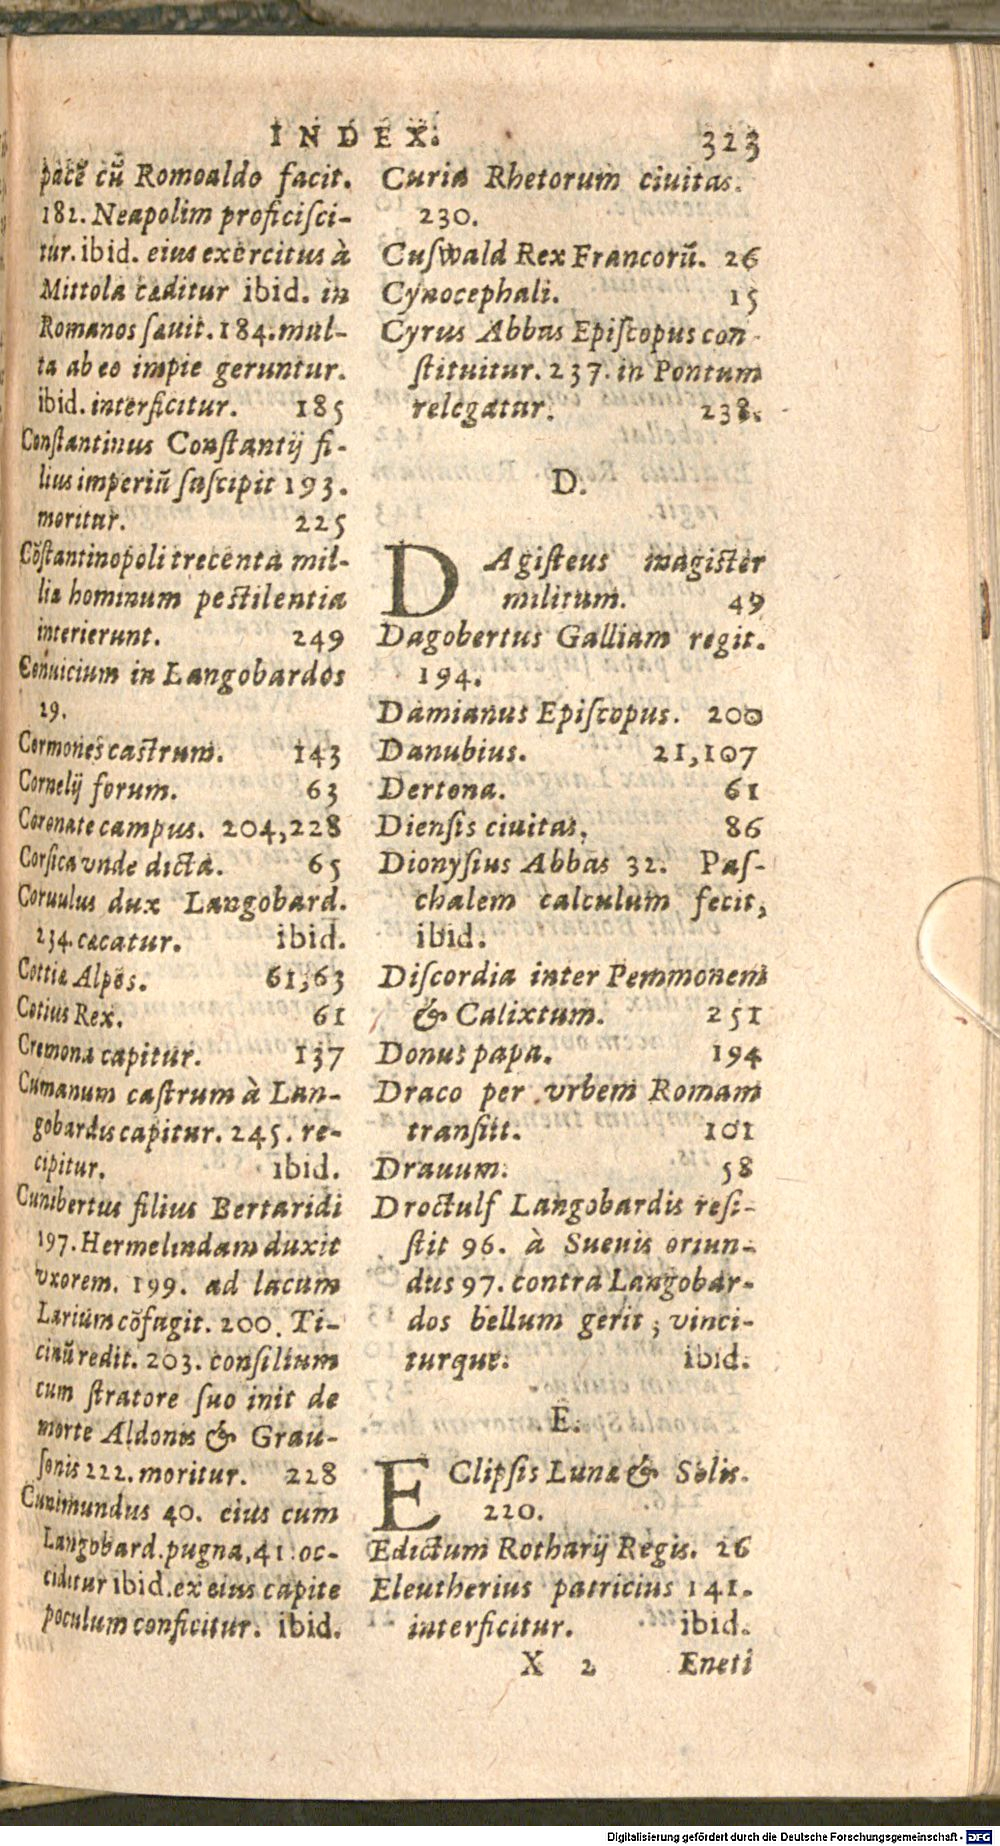 INDEX. 323
pacē cū Romoaldo facit.
181. Neapolim proficiſci-
tur. ibid. eius exercitus à
Mittola cæditur ibid. in
Romanos ſæuit. 184. mul-
ta ab eo impie geruntur.
ibid. interficitur. 185
Conſtantinus Conſtantij fi-
lius imperiū ſuſcipit 193.
moritur. 225
Cōſtantinopoli trecenta mil-
lia hominum peſtilentia
interierunt. 249
Conuicium in Langobardos
29.
Cormones caſtrum. 143
Cornelij forum. 63
Coronate campus. 204, 228
Corſica vnde dicta. 65
Coruulus dux Langobard.
234. cæcatur. ibid.
Cottiæ Alpes. 61, 63
Cotius Rex. 61
Cremona capitur. 137
Cumanum caſtrum à Lan-
gobardis capitur. 245. re-
cipitur. ibid.
Cunibertus filius Bertaridi
197. Hermelindam duxit
vxorem. 199. ad lacum
Larium cōfugit. 200. Ti-
cinū redit. 203. conſilium
cum ſtratore ſuo init de
morte Aldonis & Grau-
ſonis 222. moritur. 228
Cunimundus 40. eius cum
Langobard. pugna, 41. oc-
ciditur ibid. ex eius capite
poculum conficitur. ibid.
Curia Rhetorum ciuitas.
230.
Cuſwald Rex Francorū. 26
Cynocephali. 15
Cyrus Abbas Epiſcopus con-
ſtituitur. 237. in Pontum
relegatur. 238.
D.
DAgiſteus magiſter
militum. 49
Dagobertus Galliam regit.
194.
Damianus Epiſcopus. 200
Danubius. 21, 107
Dertona. 61
Dienſis ciuitas. 86
Dionyſius Abbas 32. Paſ-
chalem calculum fecit,
ibid.
Diſcordia inter Pemmonem
& Calixtum. 251
Donus papa. 194
Draco per vrbem Romam
tranſiit. 101
Drauum. 58
Droctulf Langobardis reſi-
ſtit 96. à Sueuis oriun-
dus 97. contra Langobar-
dos bellum gerit, vinci-
turque. ibid.
E.
EClipſis Lunæ & Solis.
220.
Edictum Rotharij Regis. 26
Eleutherius patricius 141.
interficitur. ibid.
X 2 Eneti
Digitalisierung gefördert durch die Deutsche Forschungsgemeinschaft - DFG